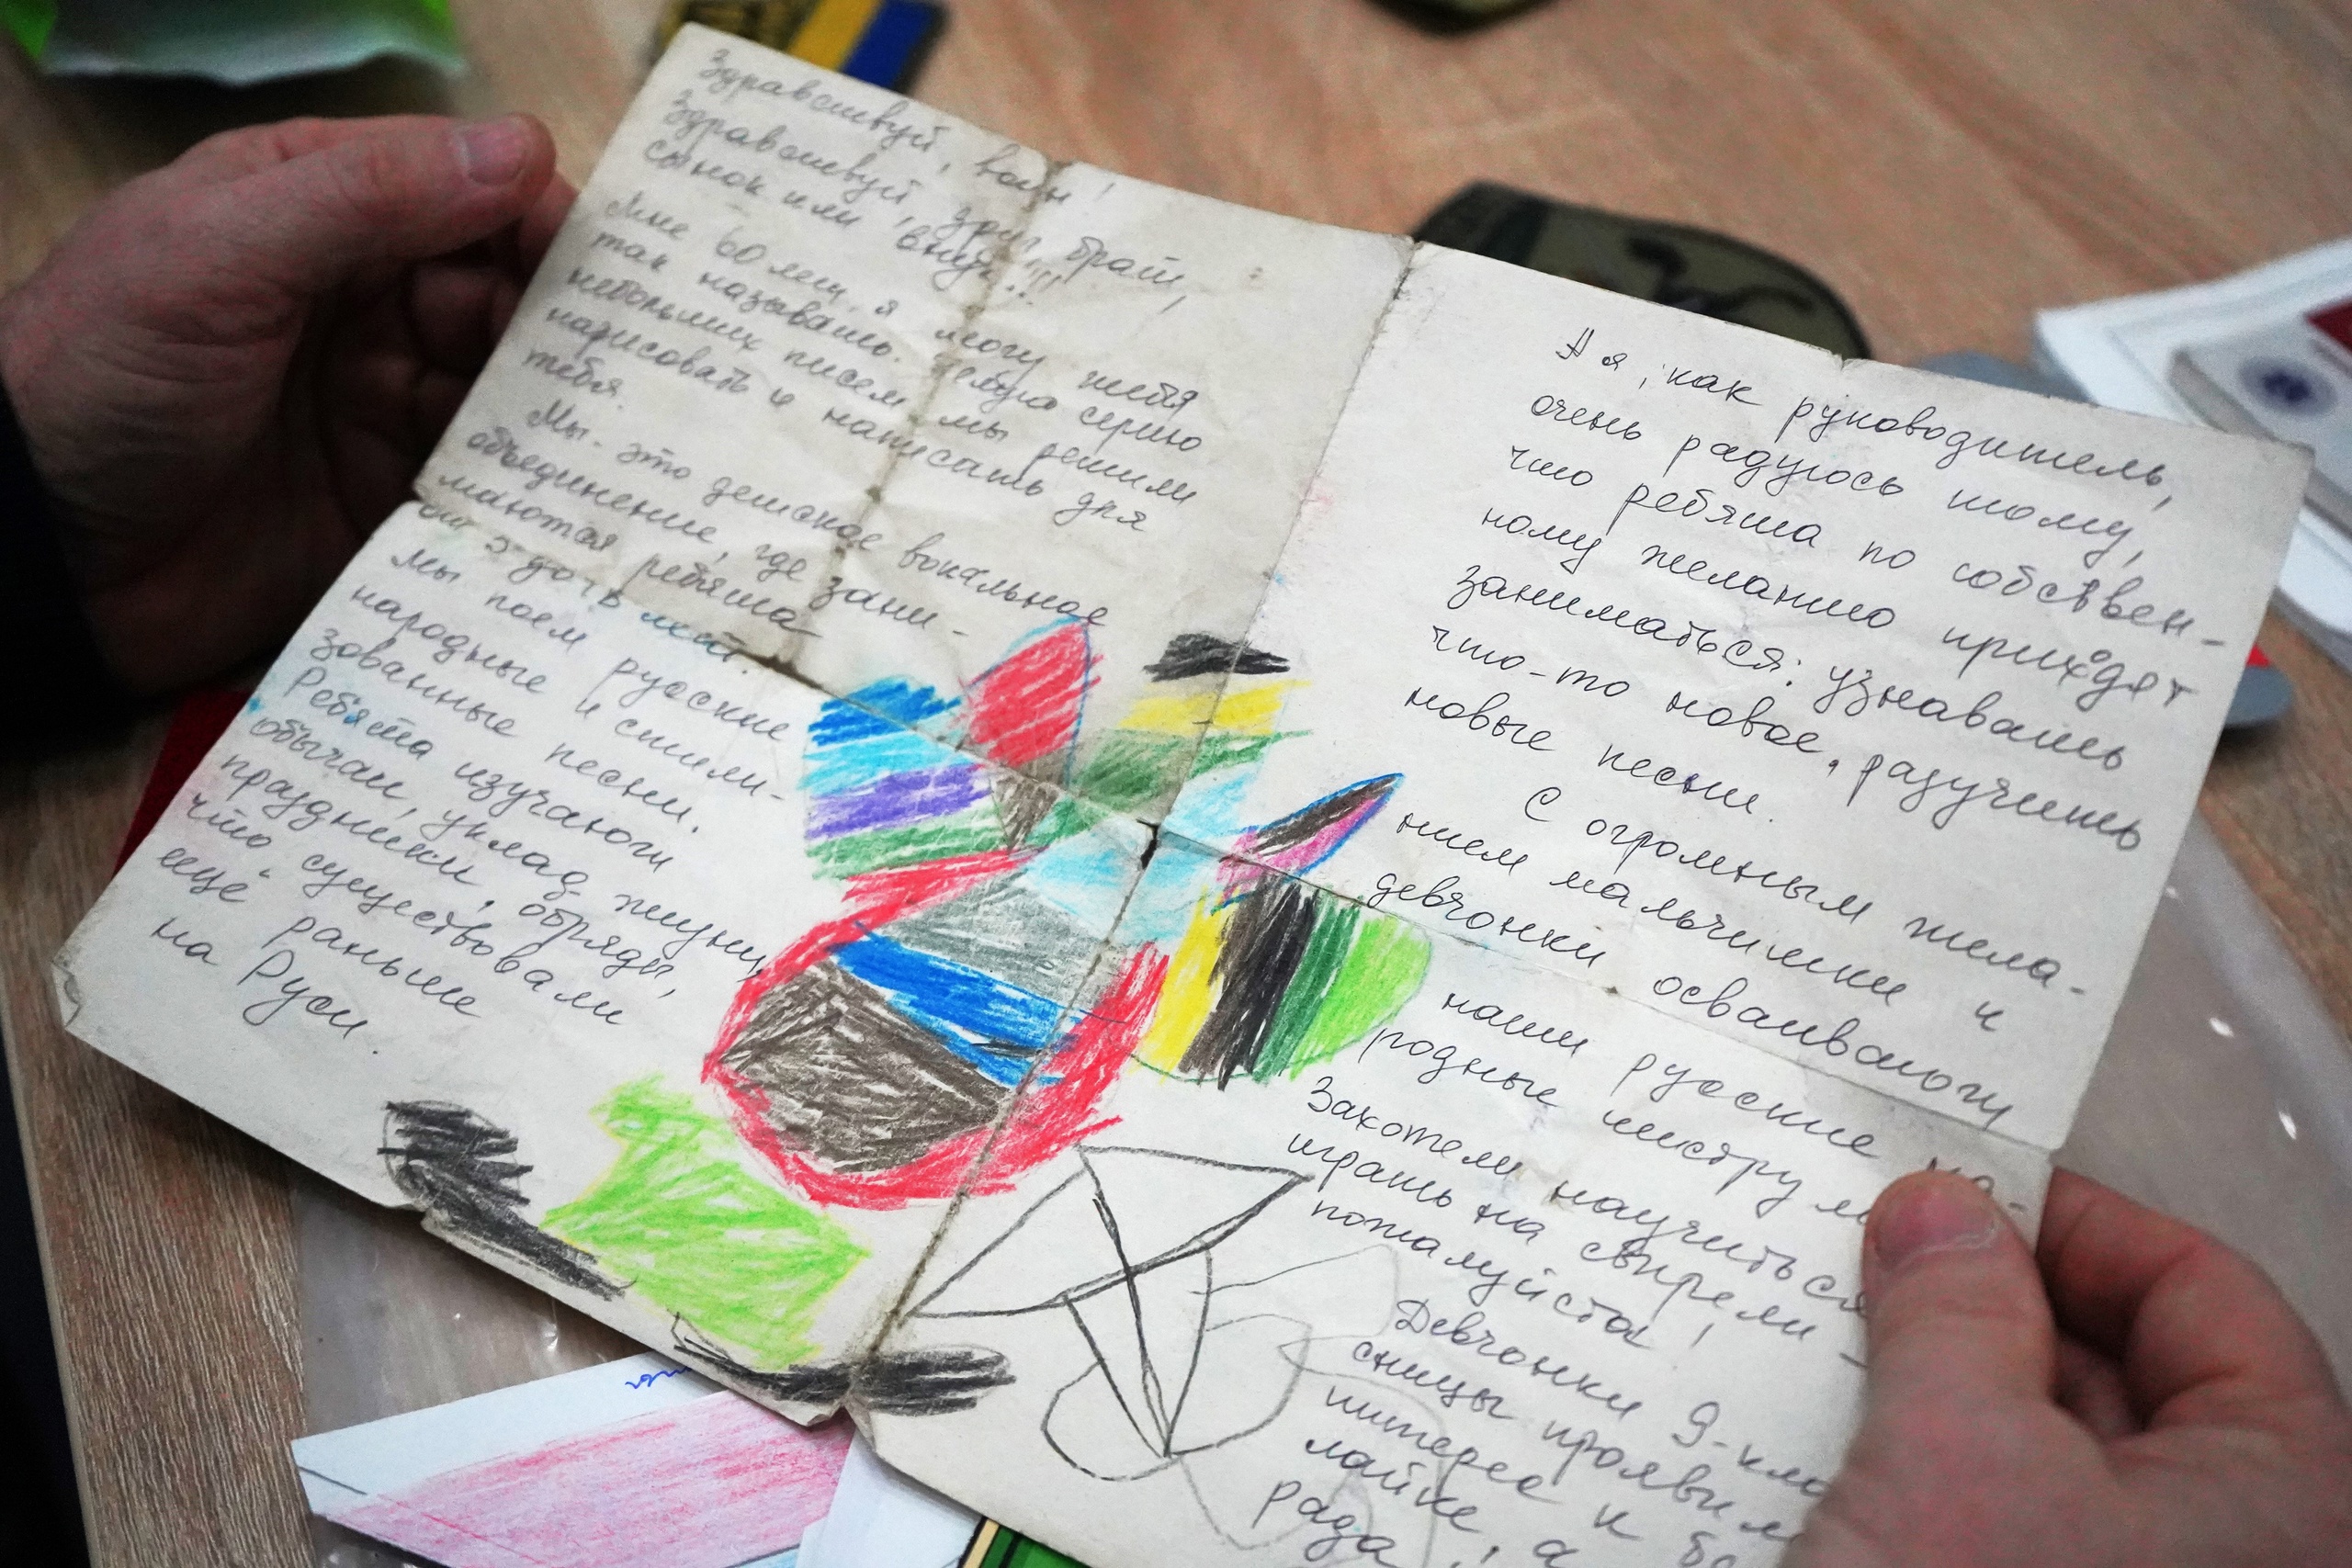 Здравствуй, воин!
Здравствуй, друг, брат,
сынок или внук!!!
Мне 60 лет, я могу тебя
так называть. Целую серию
небольших писем мы решили
нарисовать и написать для
тебя.
Мы - это детское вокальное
объединение, где зани-
маются ребята
от 5 до лет.
Мы поем русские
народные и стили-
зованные песни.
Ребята изучают
обычаи, уклад жизни,
праздники, обряды,
что существовали
ещё раньше
на Руси.
А я, как руководитель,
очень радуюсь тому,
что ребята по собствен-
ному желанию приходят
заниматься: узнавать
что-то новое, разучить
новые песни.
С огромным жела-
нием мальчишки и
девчонки осваивают
наши русские на-
родные инструм
Захотели научиться
играть на свирели -
пожалуйста!
Девчонки 9-кла
сницы прояви
интерес к ба
лайке, а
рада